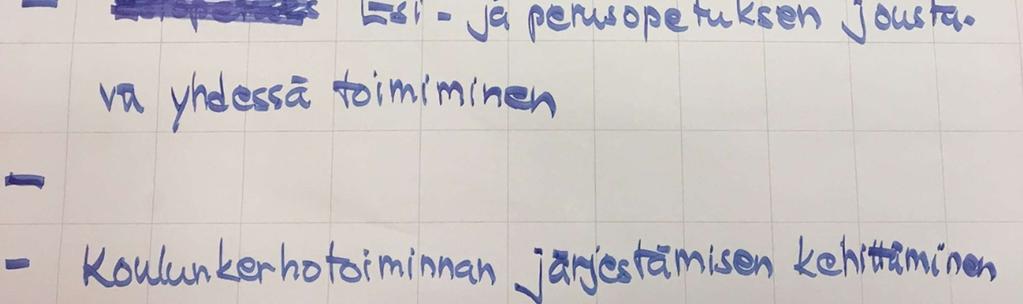 - Esi- ja perusopetuksen jousta-
va yhdessä toimiminen
-
- Koulunkerhotoiminnan järjestämisen kehittäminen